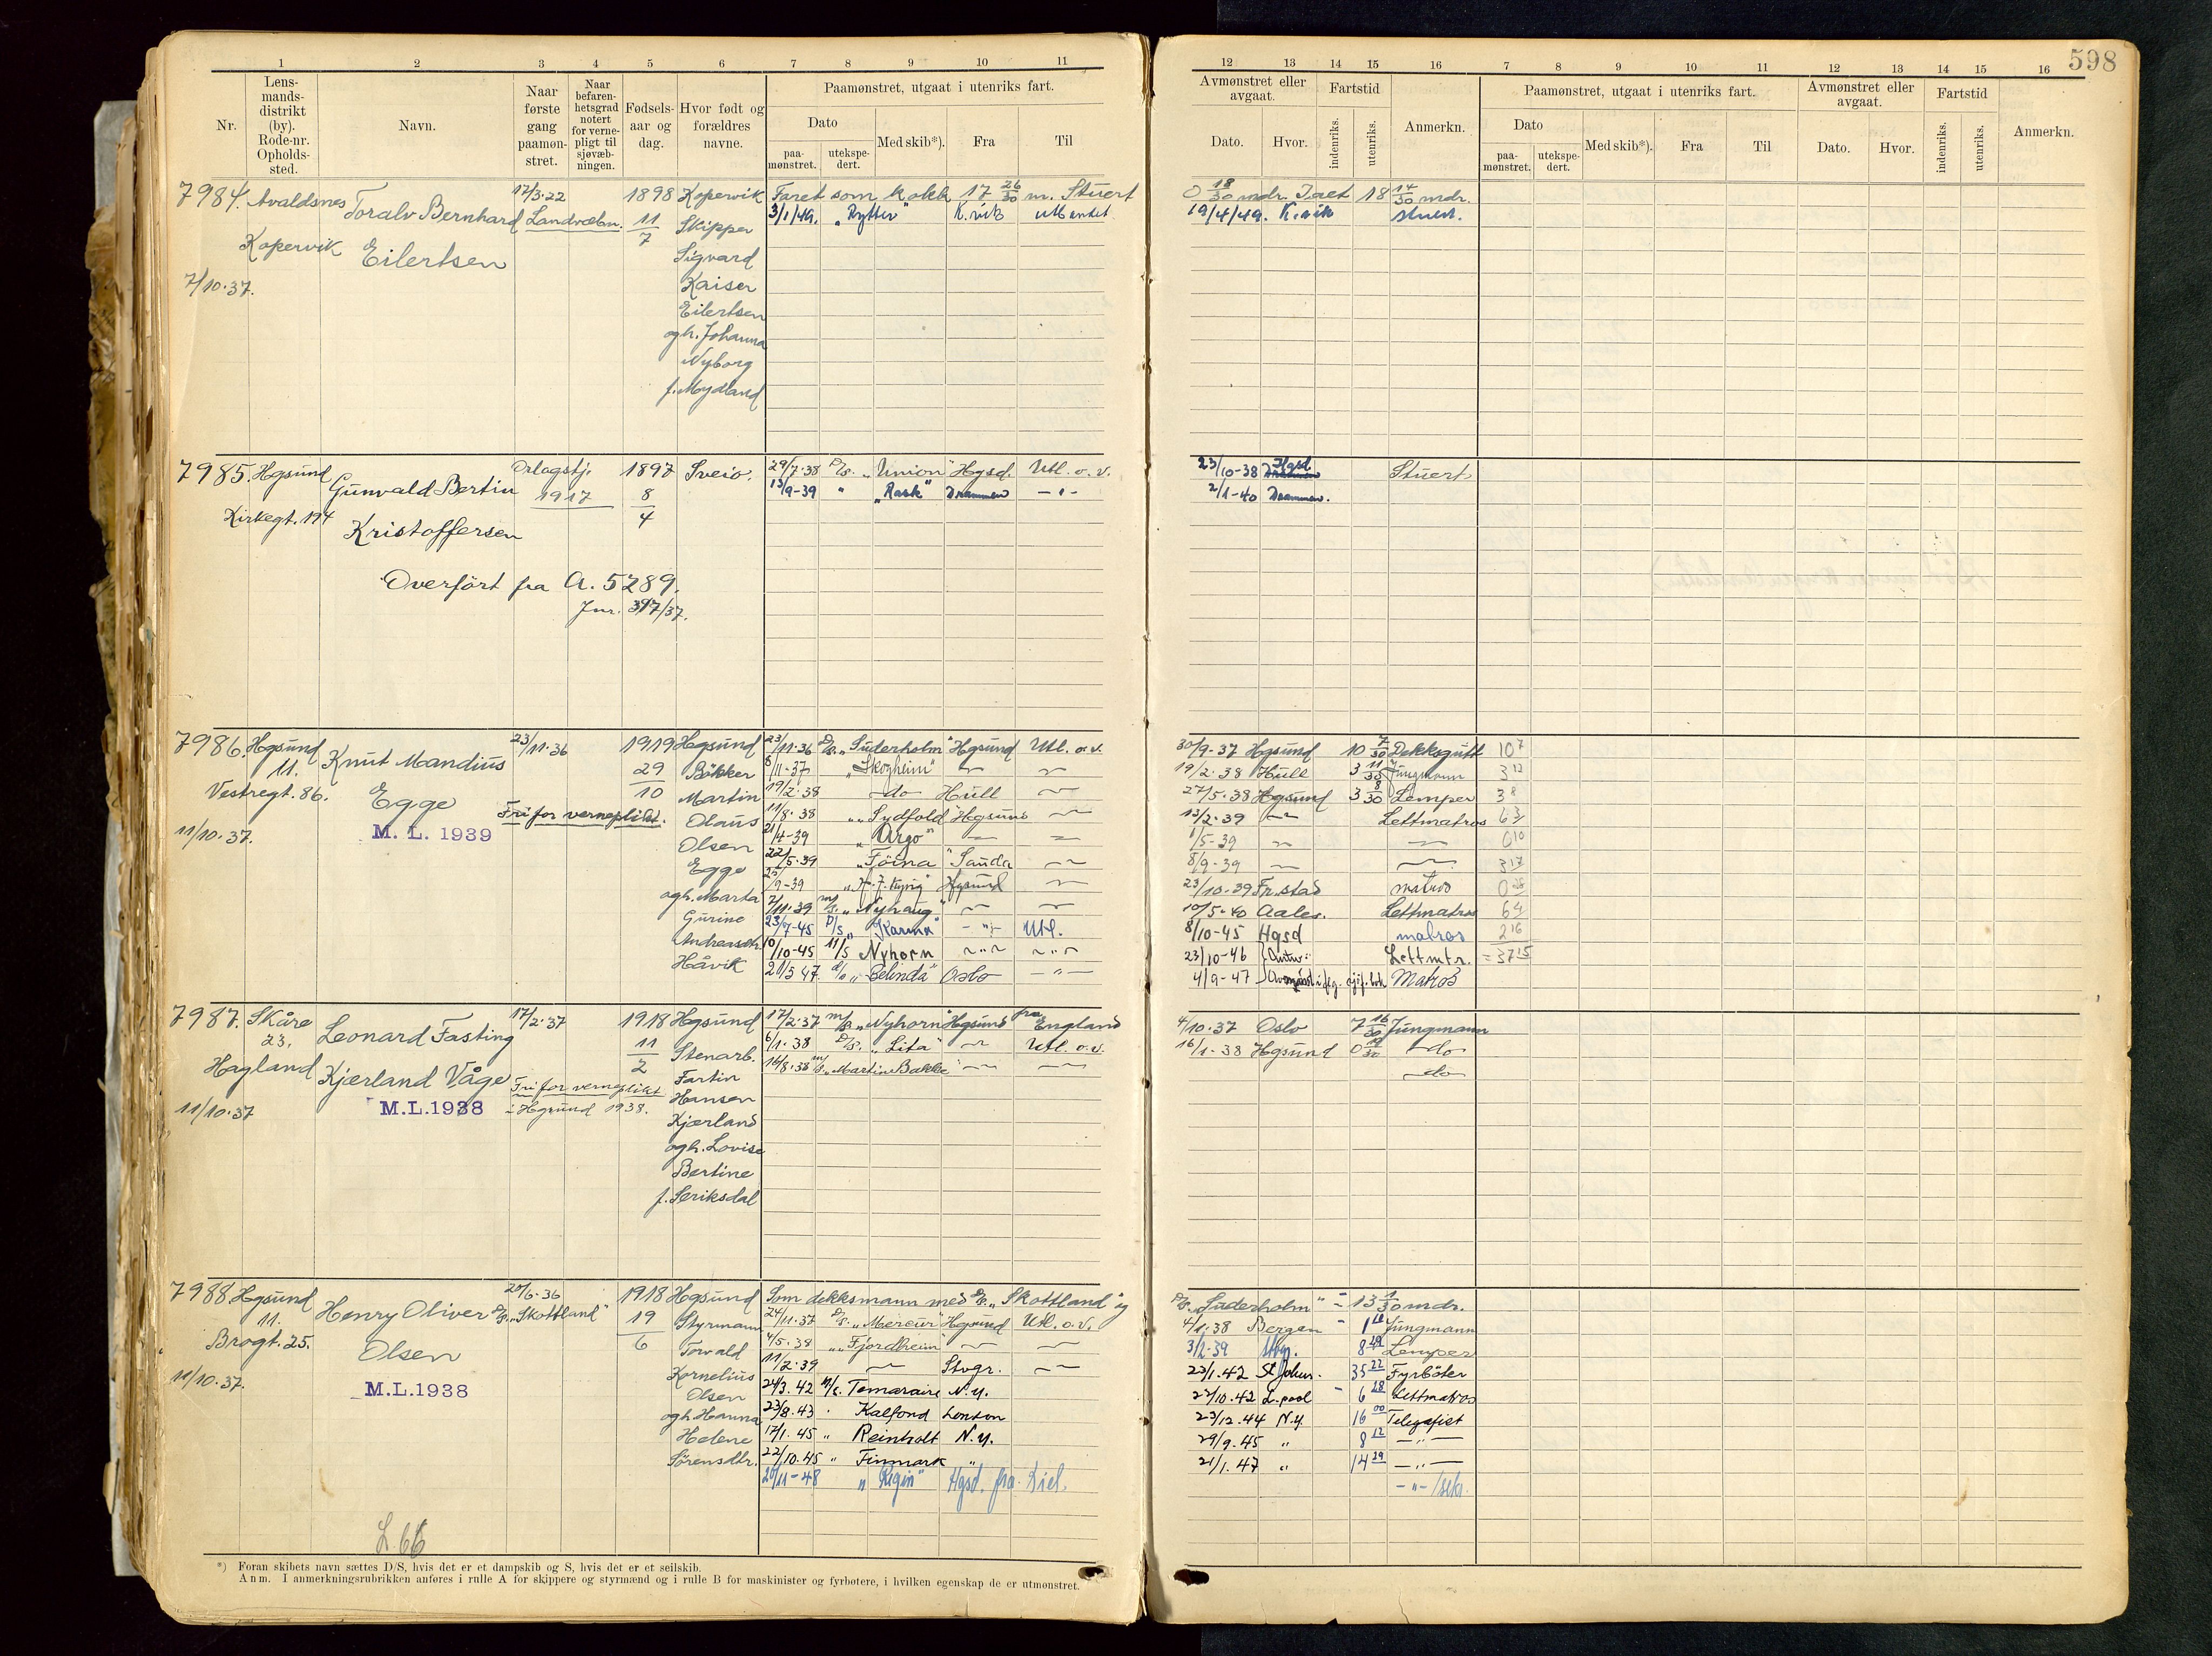 598
1 2 3 4 5 6 7 8 9 10 11
12 13 14 15 16 7 8 9 10 11 12 13 14 15 16
Nr.
Lens-
mands-
distrikt
(by).
Rode-nr.
Opholds-
sted.
Navn.
Naar
første
gang
paamøn-
stret.
Naar
befaren-
hetsgrad
notert
for verne-
pligt til
sjøvæb-
ningen.
Fødsels-
aar og
dag.
Hvor født og
forældres
navne.
Paamønstret, utgaat i utenriks fart.
Dato
paa-
mønstret.
utekspe-
dert.
Med skib*).
Fra
Til
Avmønstret eller
avgaat.
Dato.
Hvor.
Fartstid
indenriks.
utenriks.
Anmerkn.
Paamønstret, utgaat i utenriks fart.
Dato
paa-
mønstret.
utekspe-
dert.
Med skib*).
Fra
Til
Avmønstret eller
avgaat.
Dato.
Hvor.
Fartstid
indenriks.
utenriks.
Anmerkn.
7984. Avaldsnes Toralv Bernhard 17/3-22 1898 Kopervik Faret som kokk 17 26/30 m. Stuert 0 18/30 mdr. Ialt 18 14/30 mdr.
Landvæbn. 11/7 Skipper 3/1/49. "Rytter" K.vik utlandet 19/4/49. K.vik stuert.
Kopervik Eilertsen Sigvard
7/10-37. Kaiser
Eilertsen
og h. Johanna
Nyborg
f. Møydland
7985. Hgsund Gunvald Bertin Orlogstj. 1917 1897 Sveio. 29/7-38 D/s. "Union" Hgsd. Utl. o. v. 23/10-38 Hgsd Stuert
8/4 13/9-39 " "Rask" Drammen -"- 2/1-40 Drammen.
Kirkegt. 194 Kristoffersen
Overført fra A. 5289.
Jnr. 397/37.
7986. Hgsund Knut Mandius 23/11-36 1919 Hgsund 23/11-36 D/s. "Suderholm" Hgsund Utl. o. v. 30/9-37 Hgsund 10 7/30 Dekksgutt 10 7
11. 29/10 Bøkker 8/11-37 "Skogheim" 19/2-38 Hull 3 11/30 Jungmann 3 12
Vestregt. 86. Egge Martin 19/2-38 -do- Hull 27/5-38 Hgsund 3 8/30 Lemper 3 8
Fri for verneplikt. Olaus 11/8-38 "Sydfold" Hgsund 13/2-39 Lettmatros 6 3
11/10-37. M. L. 1939 Olsen 21/4-39 "Argo" 1/5-39 0 10
Egge 22/5-39 "Föina" Sauda 8/9-39 3 17
og h. Marta 9-39 Hgsund 23/10-39 Fr.stad matros
Gurine 7/11-39 m/s. "Nyhaug" 10/5-40 Aales. Lettmatros 6 4
Andreasdtr. 23/7-45 D/s "Karma" -"- Utl. 8/10-45 Hgsd matros 2 16
Håvik 10/10-45 M/s Nyhorn 23/10-46 Antw. Lettmtr. = 37 15
21/3 47. "Belinda" Oslo -"- 4/9-47 Matros
7987. Skåre Leonard Fasting 17/2-37 1918 Hgsund 17/2-37 m/s. "Nyhorn" Hgsund fra England 4/10-37 Oslo 7 16/30 Jungmann
23. 11/2 Stenarb. 6/1-38 D/s. "Lita" Utl. o. v. 16/1-38 Hgsund -do-
Hagland Kjærland Våge Fri for verneplikt Fartin 16/8-38 m/s. "Martin Bakke" -do-
11/10-37 M.L.1938 i Hgsund 1938. Hansen
Kjærland
og h. Lovise
Bertine
f. Seriksdal
7988 Hgsund Henry Oliver 20/6-36 D/s. "Skottland" 1918 Hgsund Som dekksmann med D/s. "Skottland" og D/s. "Suderholm" = 13 1/30 mdr.
11. 19/6 Styrmann 24/11-37 D/s. "Mercur" Hgsund Utl. o. v. 4/1-38 Bergen Jungmann
Brogt. 25. Olsen Torvald 4/5-38 "Fjordheim" 3/2-39 Stvgr. 8 29 Lemper
Kornelius 11/2-39 Stvgr. 23/1-42 St Johns. 35 22 Fyrbøter
11/10-37. M.L.1938 Olsen 24/3. 42 M/s. Temeraire N.Y. 22/10.42 L.pool 6 28 Lettmatros
og h. Hanna 23/8.43 " Kalfond London 23/12.44 N.Y. 16 00 Telegrafist
Helene 17/1. 45 " Reinholt N.Y. 29/9. 45 " 8 12 -"-
Sørensdtr. 22/10.45 " Finmark " 21/1. 47 " 14 29 -"-
20/11-48 "Regin" Hgsd. fra Kiel. -"-/sekr.
L. 66
*) Foran skibets navn sættes D/S, hvis det er et dampskib og S, hvis det er et seilskib.
Anm. I anmerkningsrubrikken anføres i rulle A for skippere og styrmænd og i rulle B for maskinister og fyrbøtere, i hvilken egenskap de er utmønstret.